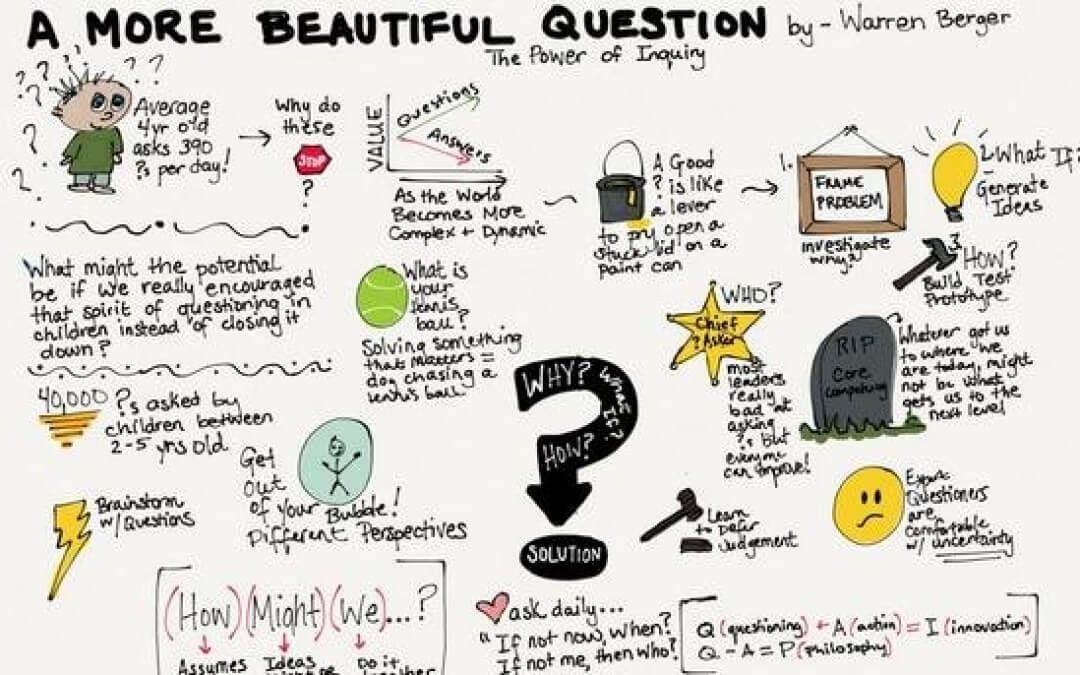 A MORE BEAUTIFUL QUESTION by - Warren Berger
The Power of Inquiry
? ? ? ? ?
?
?
?
?
Average
4yr old
asks 390
?s per day!
Why do
these
STOP
?
VALUE
Questions
Answers
As the World
Becomes More
Complex + Dynamic
A Good
? is like
a lever
to pry open a
stuck lid on a
paint can
1.
FRAME
PROBLEM
investigate
why?
2. What If?
Generate
Ideas
3.
HOW?
Build Test
Prototype
What might the potential
be if we really encouraged
that spirit of questioning in
children instead of closing it
down?
What is
your
tennis
ball?
Solving something
that matters =
dog chasing a
tennis ball
WHO?
Chief
? Asker
most
leaders
really
bad at
asking
?s but
everyone
can improve!
RIP
Core
Whatever got us
to where we
are today, might
not be what
gets us to the
next level
40,000 ?s asked by
children between
2-5 yrs old
Get
Out
of your Bubble!
Different Perspectives
WHY? What If?
HOW?
SOLUTION
Brainstorm
w/Questions
Learn
to Defer
Judgement
Expert
Questioners
are
comfortable
w/ uncertainty
(How) (Might) (We)...?
Assumes Ideas Do it
ask daily...
"If not now, when?
If not me, then who?
Q (questioning) + A (action) = I (innovation)
Q - A = P (philosophy)